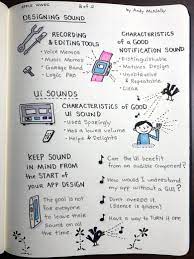 APPLE WWDC
2 of 2
by Andy McNally
DESIGNING SOUND
RECORDING
& EDITING TOOLS
• Voice Memos
• Music Memos
• Garage Band
• Logic Pro
CHARACTERISTICS
of a GOOD
NOTIFICATION SOUND
• Distinguishable
• Matches Design
• Unobtrusive &
Repeatable
• Clear
UI SOUNDS
CHARACTERISTICS OF GOOD
UI SOUND
• Used Sparingly
• Has a lowered volume
• Helps & Delights
KEEP SOUND
IN MIND FROM
the START of
your APP DESIGN
The goal is not
for everyone
to leave their
Sound on all
the time
Can the UI benefit
from an audible component?
How would I understand
my app without a GUI?
Don't overdo it.
(Silence is golden)
Have a way to TURN it OFF